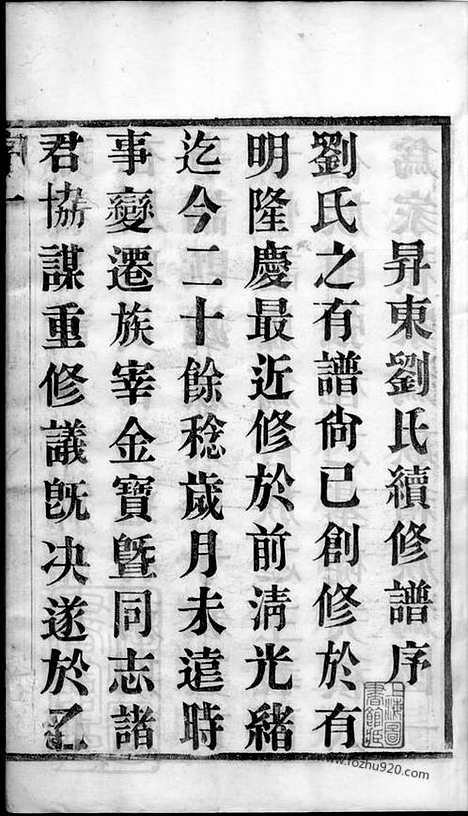 昇東劉氏續修譜序
劉氏之有譜尙已創修於有
明隆慶最近修於前淸光緒
迄今二十餘稔歲月未遠時
事變遷族宰金寶曁同志諸
君協謀重修議旣决遂於乙
序 一
上海圖書館藏
www.fozhu920.com